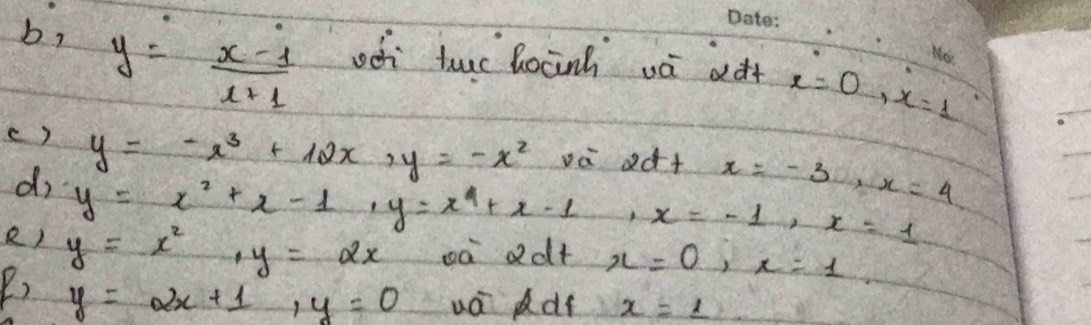 Date:
No.
b, y = \frac{x-1}{x+1} với trục hoành và 2đt x = 0, x = 1
c) y = -x³ + 12x, y = -x² và 2đt x = -3, x = 4
d, y = x² + x - 1, y = x⁴ + x - 1, x = -1, x = 1
e, y = x², y = 2x và 2đt x = 0, x = 1
f, y = 2x + 1, y = 0 và đt x = 1